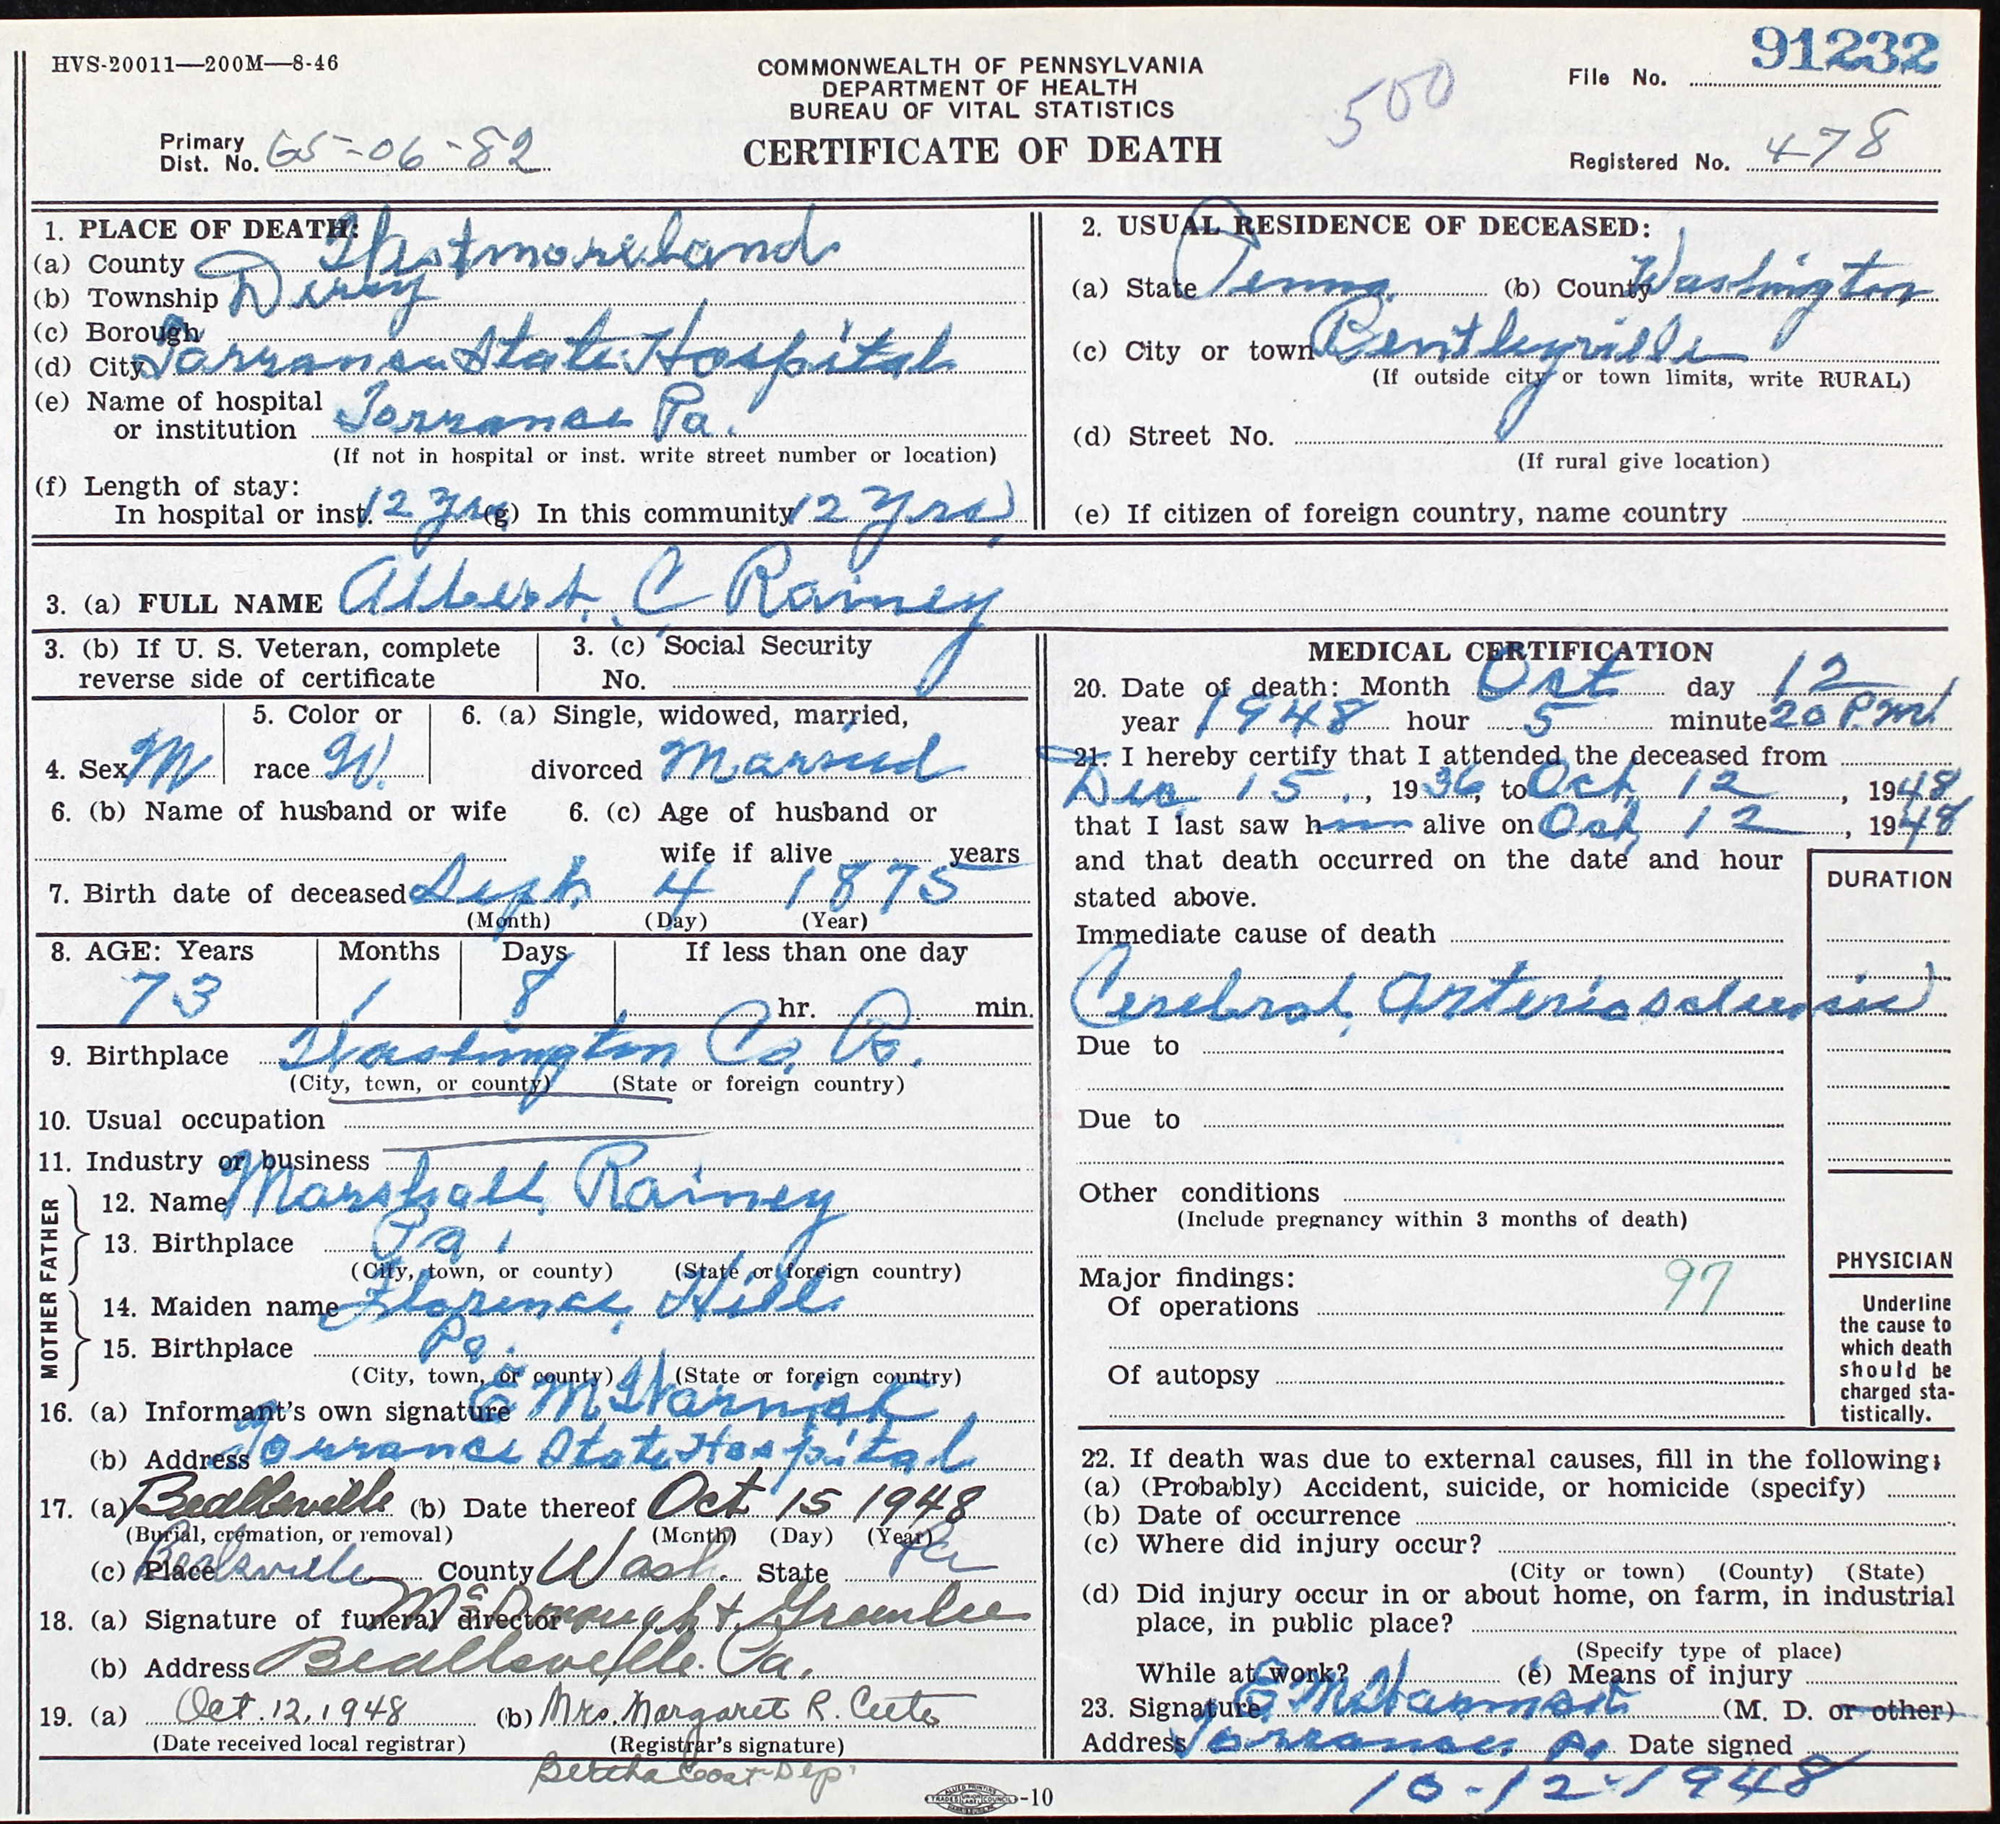 HVS-20011—200M—8-46
COMMONWEALTH OF PENNSYLVANIA
DEPARTMENT OF HEALTH
BUREAU OF VITAL STATISTICS
CERTIFICATE OF DEATH
500
File No. 91232
Primary Dist. No. 65-06-82
Registered No. 478
1. PLACE OF DEATH:
(a) County Westmoreland
(b) Township Derry
(c) Borough
(d) City Torrance State Hospital
(e) Name of hospital or institution Torrance Pa.
(If not in hospital or inst. write street number or location)
(f) Length of stay:
In hospital or inst. 12 yrs (g) In this community 12 yrs
2. USUAL RESIDENCE OF DECEASED:
(a) State Penna. (b) County Washington
(c) City or town Bentleyville
(If outside city or town limits, write RURAL)
(d) Street No.
(If rural give location)
(e) If citizen of foreign country, name country
3. (a) FULL NAME Albert C Rainey
3. (b) If U. S. Veteran, complete reverse side of certificate
3. (c) Social Security No.
4. Sex M
5. Color or race W.
6. (a) Single, widowed, married, divorced Married
6. (b) Name of husband or wife
6. (c) Age of husband or wife if alive years
7. Birth date of deceased Sept. 4 1875
(Month) (Day) (Year)
8. AGE: Years Months Days If less than one day
73 1 8 hr. min.
9. Birthplace Washington Co. Pa.
(City, town, or county) (State or foreign country)
10. Usual occupation
11. Industry or business
FATHER
12. Name Marshall Rainey
13. Birthplace Pa.
(City, town, or county) (State or foreign country)
MOTHER
14. Maiden name Florence Hill
15. Birthplace Pa.
(City, town, or county) (State or foreign country)
16. (a) Informant's own signature E M
(b) Address Torrance State Hospital
17. (a) Beallsville (b) Date thereof Oct 15 1948
(Burial, cremation, or removal) (Month) (Day) (Year)
(c) Place Bealsville County Wash. State Pa
18. (a) Signature of funeral director McDonough & Greenlee
(b) Address Beallsville. Pa.
19. (a) Oct. 12, 1948 (b) Mrs. Margaret R.
(Date received local registrar) (Registrar's signature)
Bertha Dep.
-10
MEDICAL CERTIFICATION
20. Date of death: Month Oct day 12
year 1948 hour 5 minute 20 P.M.
21. I hereby certify that I attended the deceased from
Dec. 15, 1936, to Oct. 12, 1948
that I last saw him alive on Oct. 12, 1948
and that death occurred on the date and hour
stated above.
DURATION
Immediate cause of death
Cerebral Arteriosclerosis
Due to
Due to
Other conditions
(Include pregnancy within 3 months of death)
Major findings:
Of operations
97
Of autopsy
PHYSICIAN
Underline
the cause to
which death
should be
charged sta-
tistically.
22. If death was due to external causes, fill in the following:
(a) (Probably) Accident, suicide, or homicide (specify)
(b) Date of occurrence
(c) Where did injury occur?
(City or town) (County) (State)
(d) Did injury occur in or about home, on farm, in industrial
place, in public place?
(Specify type of place)
While at work? (e) Means of injury
23. Signature E M (M. D. or other)
Address Torrance Pa Date signed
10-12-1948